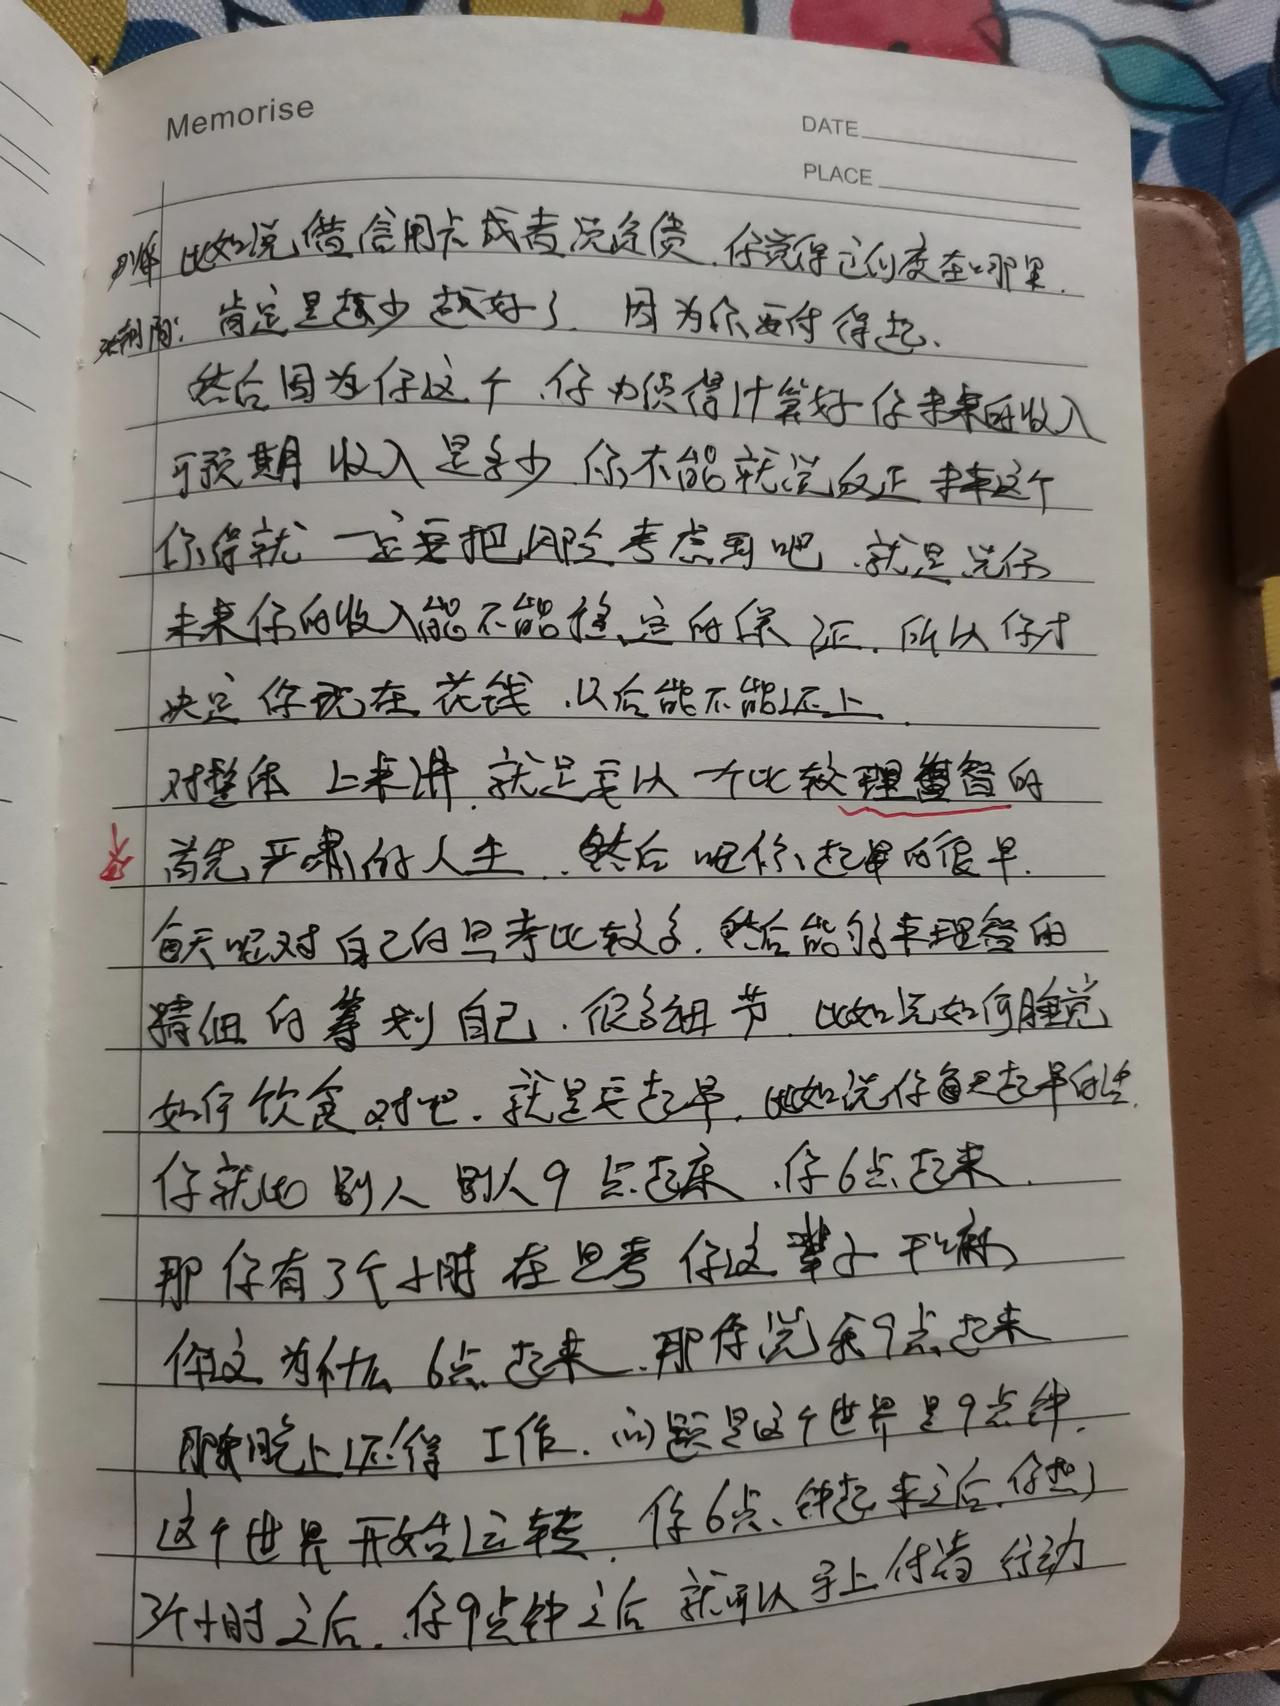 Memorise
DATE
PLACE
比如说借信用卡或者说还债.你觉得它们变在哪里.
肯定是越少越好了.因为你要付得起.
然后因为你这个.你必须得计算好你未来的收入
可预期收入是多少.你不能就说反正未来这个
你得就一定要把风险考虑到吧.就是说你
未来你的收入能不能稳定的保证.所以你才
决定你现在花钱.以后能不能还上.
对整体上来讲.就是要以一个比较理智的
首先严肃的人生.然后呢你起早的很早.
每天呢对自己的思考比较多.然后能够来理智的
精细的筹划自己.很多细节.比如说如何睡觉
如何饮食对吧.就是要起早.比如说你每天起早的话.
你就比别人别人9点起床.你6点起来.
那你有3个小时在思考你这辈子干嘛
你这为什么6点起来.那你说余9点起来
晚上还得工作.问题是这个世界是9点钟.
这个世界开始运转.你6点钟起来之后.你想了
3个小时之后.你9点钟之后就可以马上付诸行动